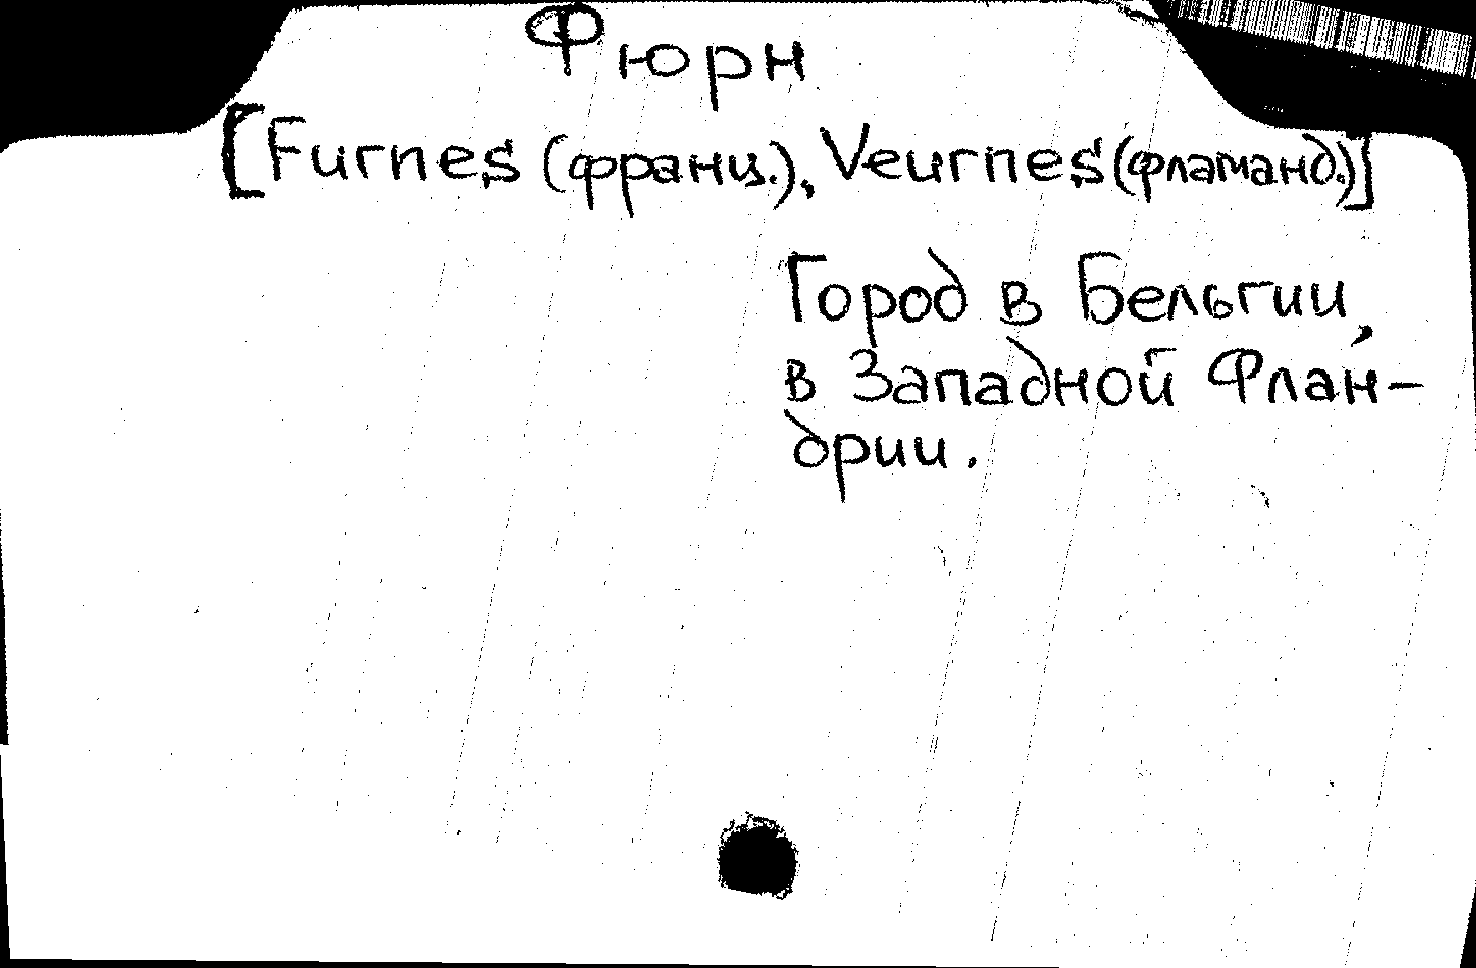 Фюрн
[Furnes (франц.), Veurnes (фламанд.)]
Город в Бельгии,
в Западной Флан-
дрии.